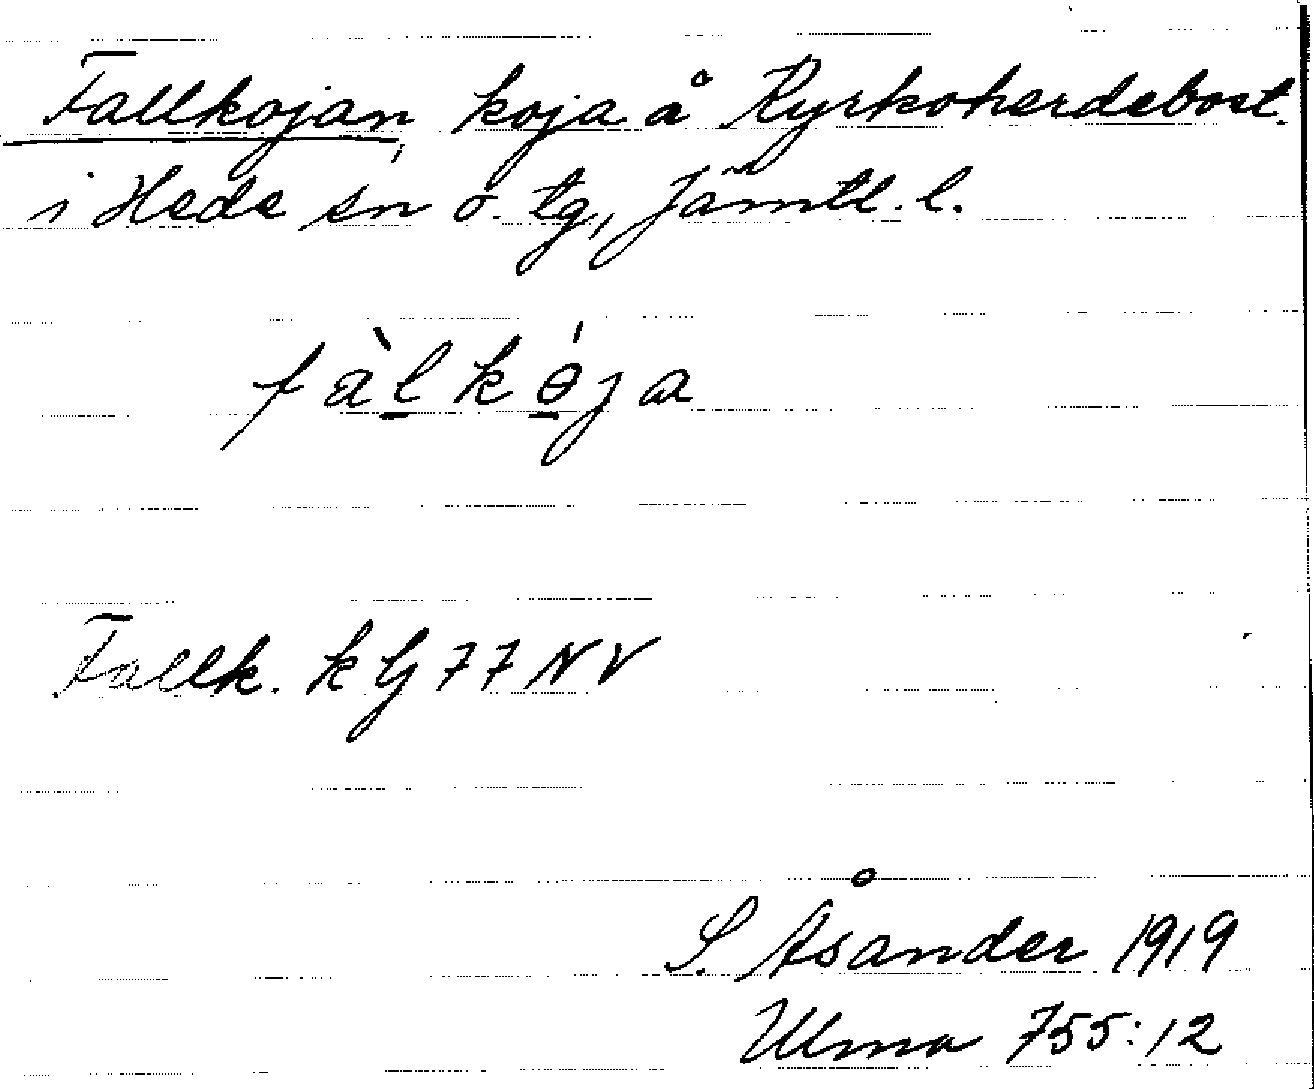 Fallkojan, koja å Kyrkoherdebost.
i Hede sn o. tg, Jämtl. l.
fàlkɵ́ja
Fallk. k G 77 NV
S. Åsander 1919
Ulma 755:12